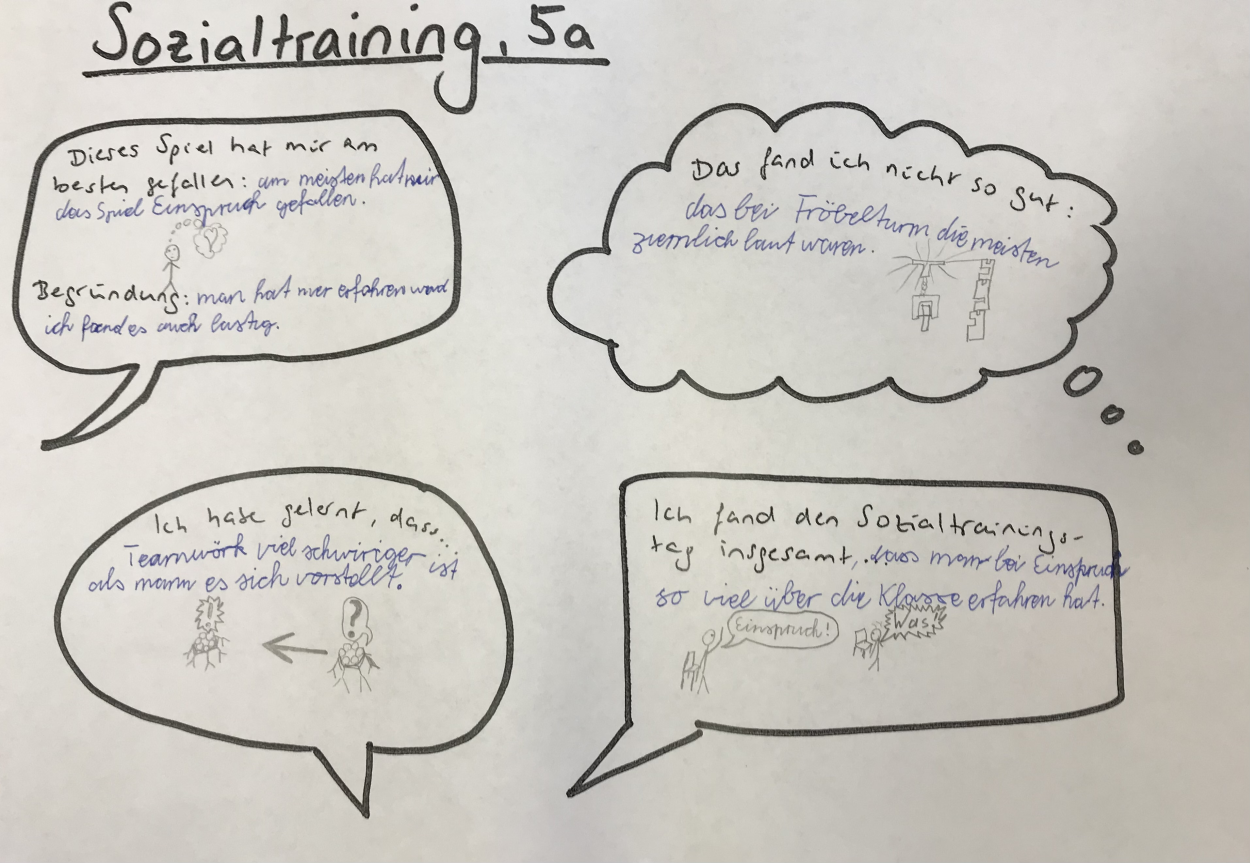 Sozialtraining, 5a
Dieses Spiel hat mir am
besten gefallen: am meisten hat mir
das Spiel Einspruch gefallen.
Begründung: man hat mer erfahren und
ich fand es auch lustig.
Das fand ich nicht so gut:
das bei Fröbelturm die meisten
ziemlich laut waren.
Ich habe gelernt, dass...
Teamwörk viel schwiriger ist
als mann es sich vorstellt.
?
Ich fand den Sozialtrainings-
tag insgesamt... dass man bei Einspruch
so viel über die Klasse erfahren hat.
Einspruch!
Was!